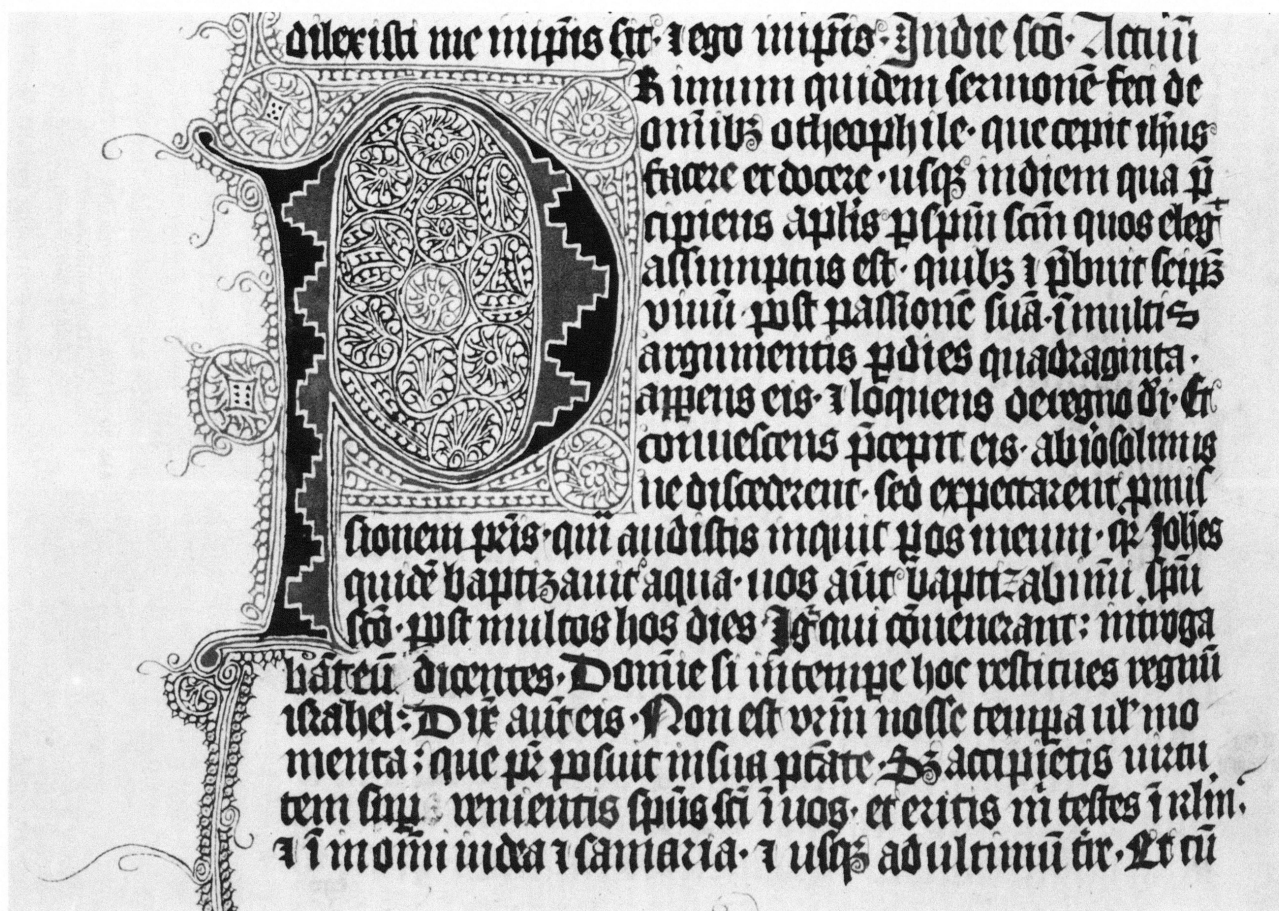 dilexisti me in ip̄is sit · ⁊ ego in ip̄is · In die sc̄o · Actuū
PRimum quidem sermonē feci de
om̄ibꝫ o theophile · que cepit ih̄us
facere et docere · usqꝫ in diem qua p̄
cipiens ap̄lis p sp̄m sc̄m quos elegᵗ
assumptus est · quibꝫ ⁊ p̄buit seip̄ꝫ
viuū · post passionē suā · ī multis
argumentis p dies quadraginta ·
apparens eis · ⁊ loquens de regno dī · Et
conuescens p̄cepit eis · ab iosolimis
ne discederent · sed expectarent pmis
sionem pr̄is · quā audistis inquit p os meum · qꝛ Joh̄es
quidē baptizauit aqua · uos aūt baptizabimī sp̄u
sc̄o · post multos hos dies · Iḡ qui cōuenerant : intᵒga
bāt eū dicentes · Domine si in tempe hoc restitues regnū
israhel : Dix̄ aūt eis · Non est vr̄m nosse tempa ul' mo
menta : que pr̄ posuit in sua pt̄ate · Sꝫ accipietis uirtu
tem sup uenientis sp̄us sc̄i ī uos · et eritis m̄ testes ī irl̄m ·
⁊ ī mom̄i iudea ⁊ samaria · ⁊ usqꝫ ad ultimū tr̄e · Et cū